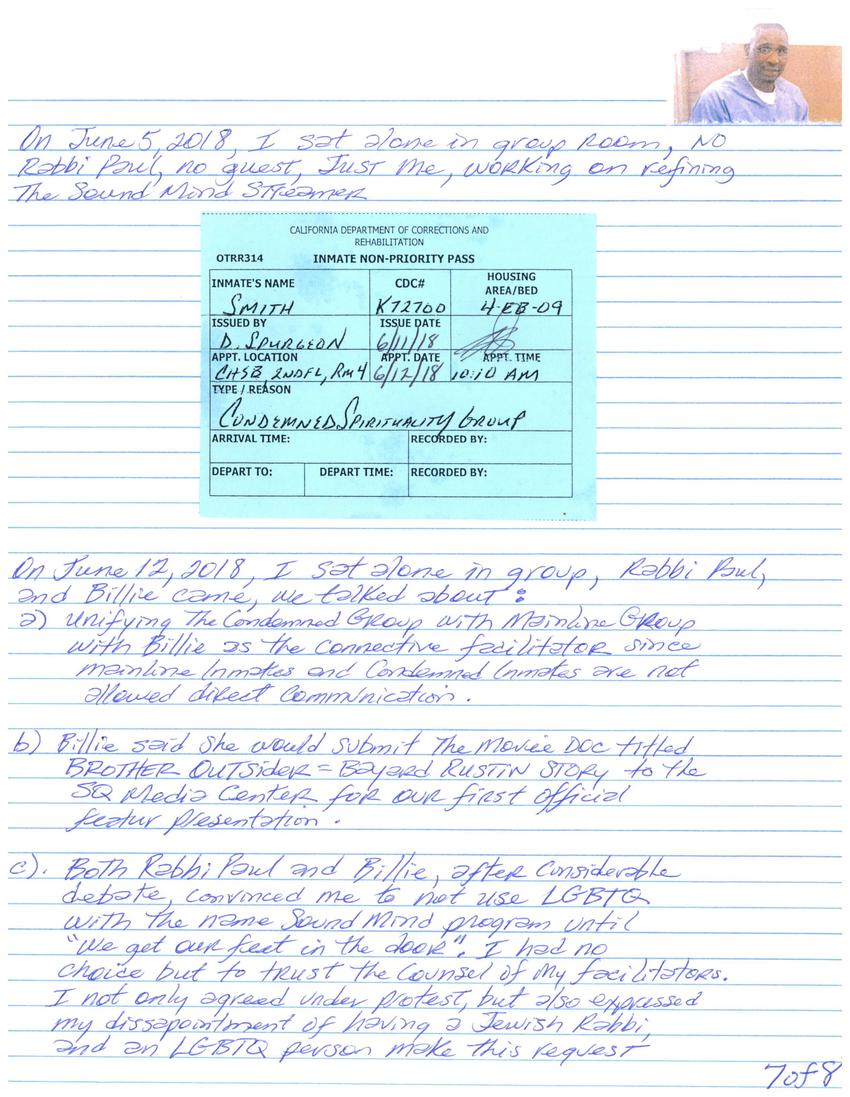 On June 5, 2018, I sat alone in group room, NO
Rabbi Paul, no guest, Just Me, working on refining
The Sound Mind Streamer
CALIFORNIA DEPARTMENT OF CORRECTIONS AND
REHABILITATION
OTRR314 INMATE NON-PRIORITY PASS
INMATE'S NAME CDC# HOUSING AREA/BED
SMITH K72700 4-EB-09
ISSUED BY ISSUE DATE
D. SPURGEON 6/11/18
APPT. LOCATION APPT. DATE APPT. TIME
CHSB, 2NDFL, RM4 6/12/18 10:10 AM
TYPE / REASON
CONDEMNED SPIRITUALITY GROUP
ARRIVAL TIME: RECORDED BY:
DEPART TO: DEPART TIME: RECORDED BY:
On June 12, 2018, I sat alone in group, Rabbi Paul,
and Billie came, we talked about:
a) Unifying The Condemned Group with Mainline Group
with Billie as the connective facilitator since
mainline Inmates and Condemned Inmates are not
allowed direct Communication.
b) Billie said she would submit The Movie Doc titled
BROTHER OUTSider = Bayard RUSTIN STORY to the
SQ Media Center for our first official
featur presentation.
c). Both Rabbi Paul and Billie, after considerable
debate, convinced me to not use LGBTQ
with the name Sound Mind program until
"we get our feet in the door". I had no
choice but to trust the Counsel of My facilitators.
I not only agreed under protest, but also expressed
my dissapointment of having a Jewish Rabbi,
and an LGBTQ person make this request
7 of 8